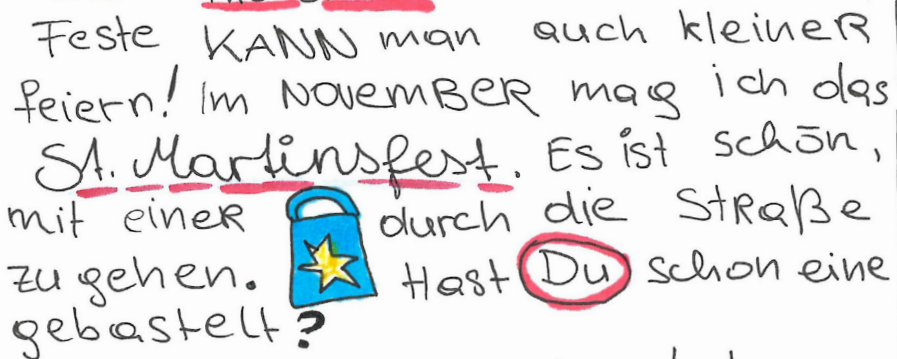 Feste KANN man auch kleiner
feiern! Im NOVEMBER mag ich das
St. Martinsfest. Es ist schön,
mit einer durch die Straße
zu gehen. Hast Du schon eine
gebastelt?